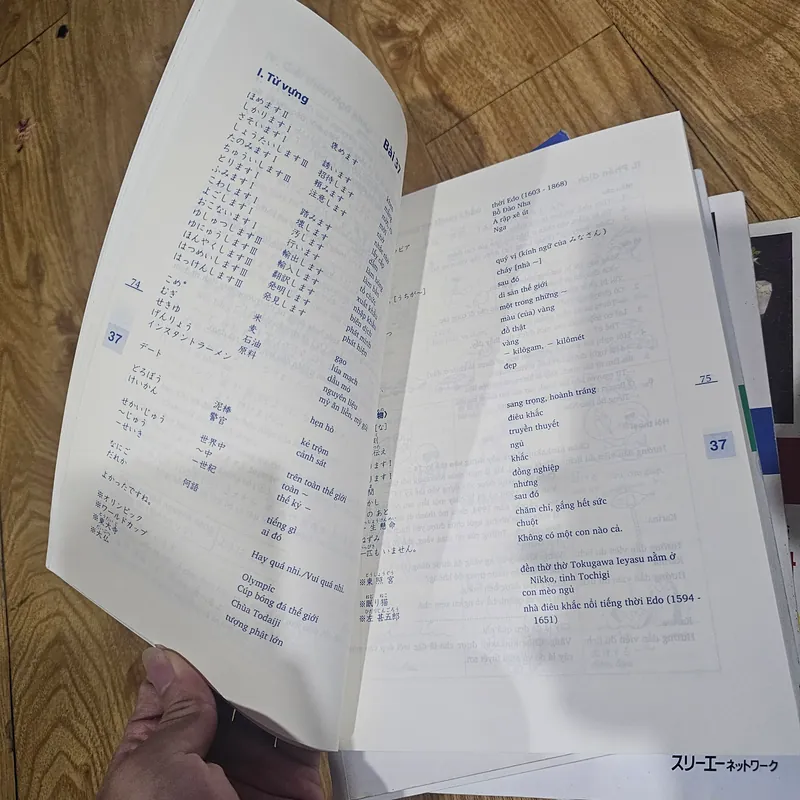 I. Từ vựng
Bài 37
ほめますⅡ 褒めます
しかりますⅠ
さそいますⅠ 誘います
しょうたいしますⅢ 招待します
たのみますⅠ 頼みます
ちゅういしますⅢ 注意します
とりますⅠ
ふみますⅠ 踏みます
こわしますⅠ 壊します
よごしますⅠ 汚します
おこないますⅠ 行います tổ chức
ゆしゅつしますⅢ 輸出します xuất khẩu
ゆにゅうしますⅢ 輸入します nhập khẩu
ほんやくしますⅢ 翻訳します biên dịch
はつめいしますⅢ 発明します phát minh
はっけんしますⅢ 発見します phát hiện
74
37
こめ* 米 gạo
むぎ 麦 lúa mạch
せきゆ 石油 dầu mỏ
げんりょう 原料 nguyên liệu
インスタントラーメン mỳ ăn liền, mỳ gói
デート hẹn hò
どろぼう 泥棒 kẻ trộm
けいかん 警官 cảnh sát
せかいじゅう 世界中 trên toàn thế giới
～じゅう ～中 toàn ～
－せいき －世紀 thế kỷ －
なにご 何語 tiếng gì
だれか ai đó
よかったですね。 Hay quá nhỉ./Vui quá nhỉ.
※オリンピック Olympic
※ワールドカップ Cúp bóng đá thế giới
※東大寺 Chùa Todaiji
※大仏 tượng phật lớn
thời Edo (1603 - 1868)
Bồ Đào Nha
Ả rập xê út
Nga
quý vị (kính ngữ của みなさん)
cháy [nhà ～]
sau đó
di sản thế giới
một trong những ～
màu (của) vàng
đồ thật
vàng
－ kilôgam, － kilômét
đẹp
75
37
sang trọng, hoành tráng
điêu khắc
truyền thuyết
ngủ
khắc
đồng nghiệp
nhưng
sau đó
chăm chỉ, gắng hết sức
chuột
Không có một con nào cả.
※東照宮 đền thờ thờ Tokugawa Ieyasu nằm ở
Nikko, tỉnh Tochigi
※眠り猫 con mèo ngủ
※左甚五郎 nhà điêu khắc nổi tiếng thời Edo (1594 -
1651)
スリーエーネットワーク